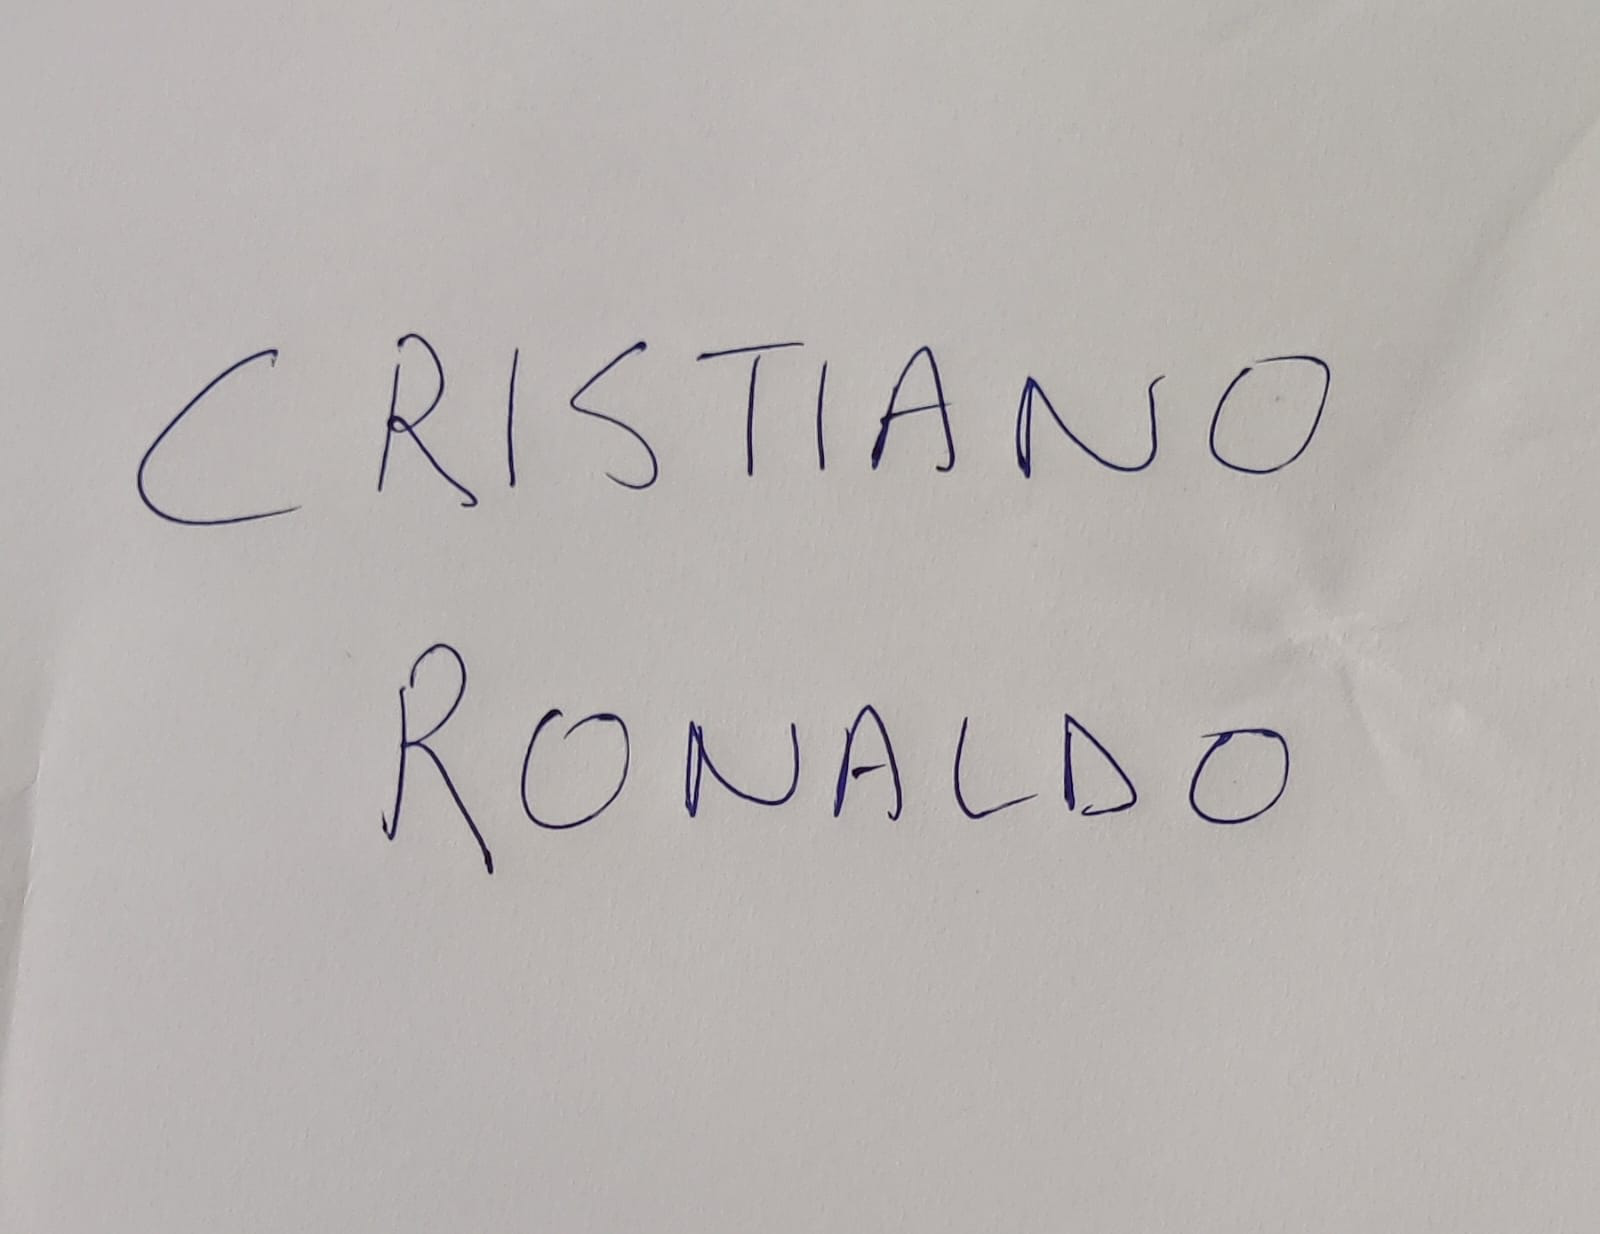 CRISTIANO
RONALDO